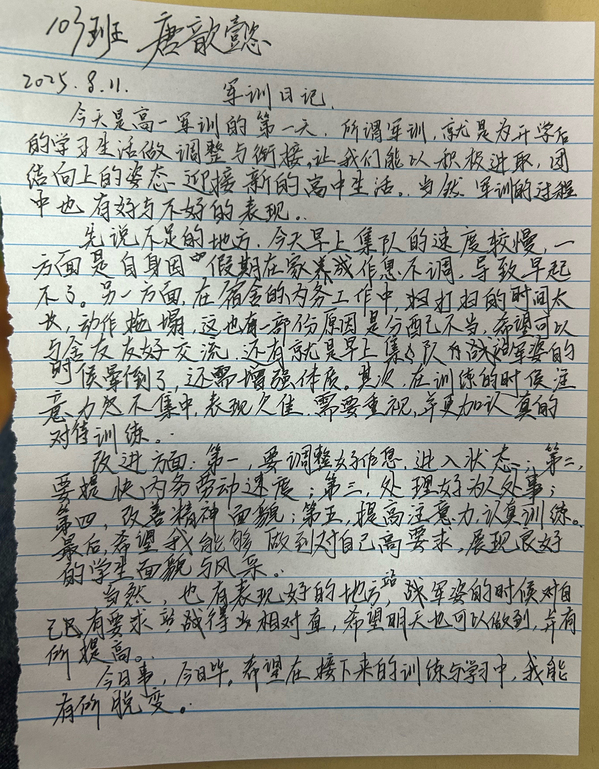 103班 唐歆懿
2025.8.11. 军训日记.
今天是高一军训的第一天. 所谓军训, 就是为开学后
的学习生活做调整与衔接, 让我们能以积极进取, 团
结向上的姿态 迎接新的高中生活。当然 军训的过程
中也有好与不好的表现。
先说不足的地方. 今天早上集队的速度较慢, 一
方面是自身因 假期在家养成作息不调, 导致早起
不了。另一方面, 在宿舍的内务工作中, 扫的时间太
长, 动作拖塌, 这也有一部份原因是分配不当, 希望可以
与舍友友好交流, 还有就是早上集队 军姿的
时候晕倒了, 还需增强体质。其次, 在训练的时候注
意力 不集中, 表现欠佳, 需要重视, 并更加认真的
对待训练。
改进方面: 第一, 要调整好作息, 进入状态; 第二,
要提快内务劳动速度; 第三, 处理好为人处事;
第四, 改善精神面貌; 第五, 提高注意力, 认真训练。
最后, 希望我能够做到对自己高要求, 展现良好
的学生面貌与风采。
当然, 也有表现好的地方, 站 军姿的时候对自
己有要求 得 相对直, 希望明天也可以做到, 并有
所提高。
今日事, 今日毕。希望在接下来的训练与学习中, 我能
有所脱变。